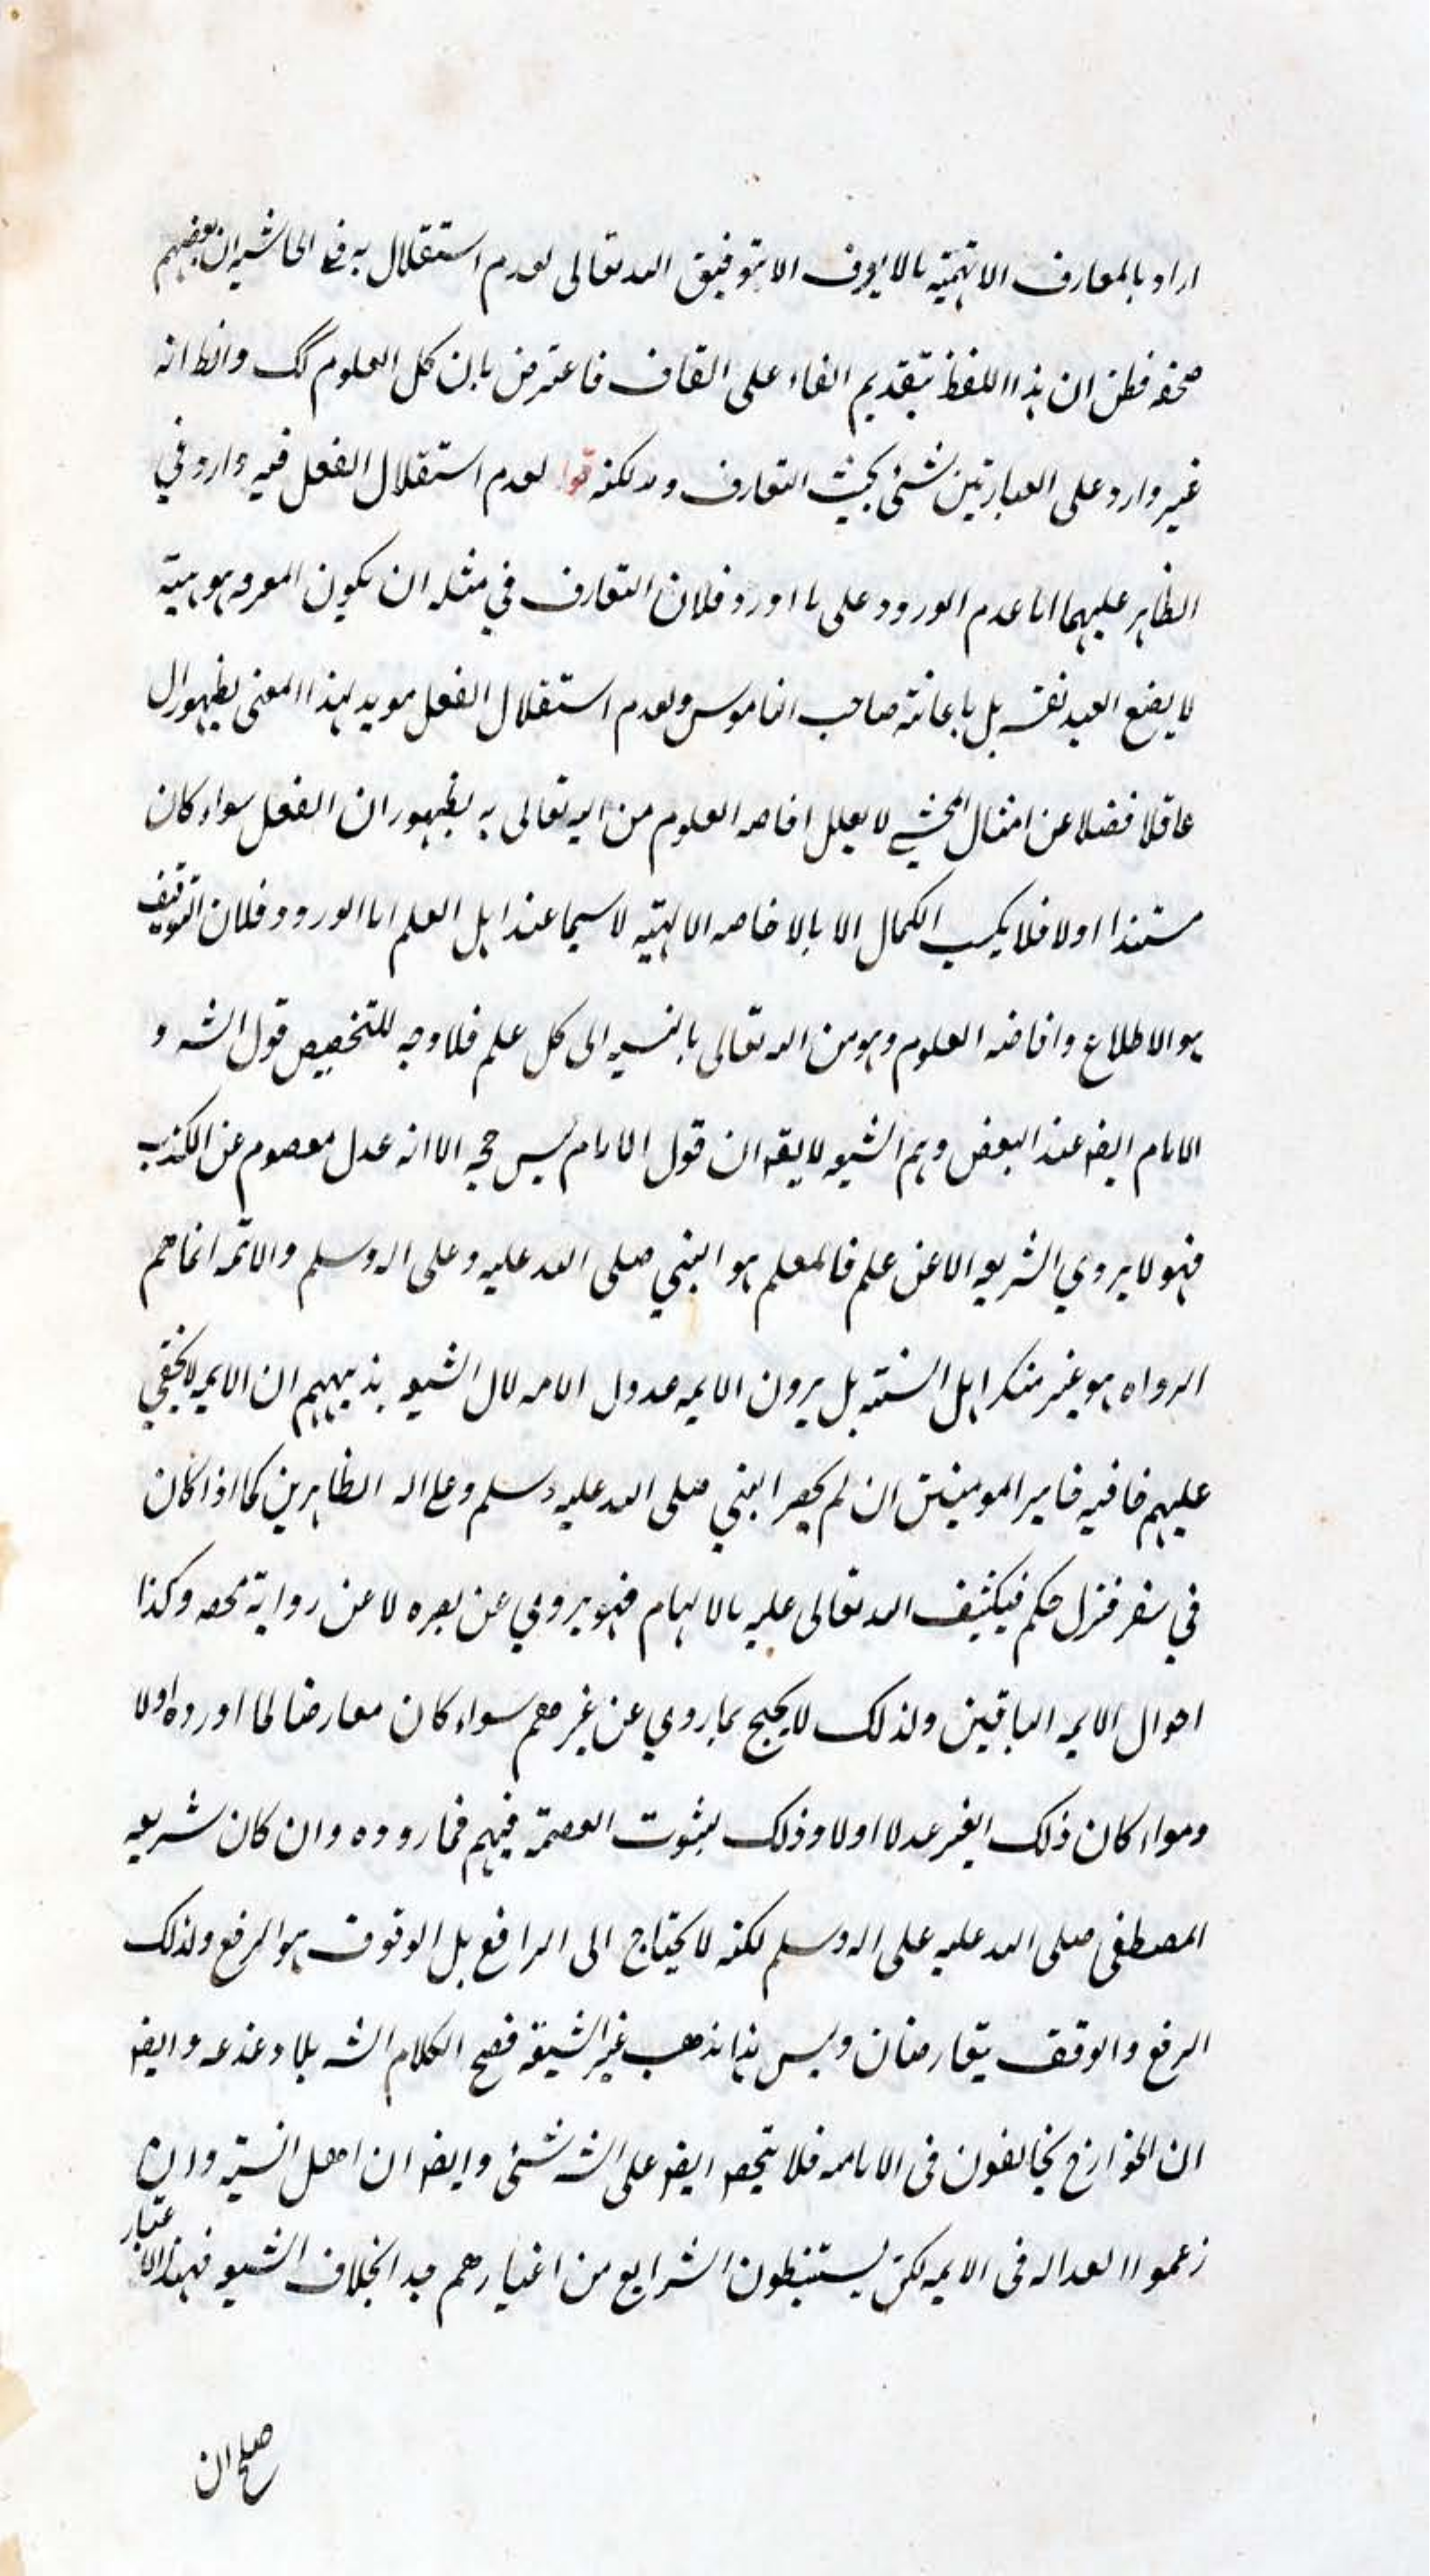 اراد بالمعارف الالهية ما لا يعرف الا بتوفيق الله تعالى لعدم استقلال به فى الحاشيه ان بعضهم
صحفه فظن ان هذا اللفظ بتقديم الفاء على القاف فاعترض بان كل العلوم كك والظ انه
غير وارد على العبارتين شئ بحيث التعارف ولكنه قوله لعدم استقلال العقل فيه وارد في
الظاهر عليهما اما عدم الورود على ما اورد فلان التعارف في مثله ان يكون المعرفه موهبية
لا يضع العبد نفسه بل باعانة صاحب الناموس ولعدم استقلال العقل مويد لهذا المعنى بظهور ال
عاقلا فضلا عن امثال المحشي لا يعلل افاضه العلوم من الله تعالى به بظهور ان العقل سواء كان
مستندا اولا فلا يكسب الكمال الا بالافاضه الالهية لا سيما عند اهل العلم اما الورود فلان التوقيف
هو الاطلاع وافاضه العلوم وهو من الله تعالى بالنسبه الى كل علم فلا وجه للتخصيص قول الشه و
الامام ايضه عند البعض وهم الشيعه لا يقه ان قول الامام ليس حجه الا انه عدل معصوم عن الكذب
فهو لا يروي الشريعه الا عن علم فالمعلم هو النبي صلى الله عليه وعلى اله وسلم والائمه انما هم
الرواه هو غير منكر اهل السنة بل يرون الايمه عدول الامه لان الشيعه مذهبهم ان الايمه لا يخفى
عليهم خافيه فامير المومنين ان لم يحضر النبي صلى الله عليه وسلم وعلى اله الطاهرين كما اذا كان
في سفر فنزل حكم فيكشف الله تعالى عليه بالالهام فهو يروي عن بصره لا عن رواية محضه وكذا
احوال الايمه الباقين ولذلك لا يحتج بما روي عن غيرهم سواء كان معارضا لما اورده اولا
وسواء كان ذلك الغير عدلا اولا وذلك لثبوت العصمة فيهم فما رووه وان كان شريعه
المصطفى صلى الله عليه على اله وسلم لكنه لا يحتاج الى الرافع بل الوقوف هو الرفع ولذلك
الرفع والوقف يتعارضان وليس هذا مذهب غير الشيعة فصح الكلام الشه بلا دغدغه وايضه
ان الخوارج يخالفون فى الامامه فلا يتجه ايضه على الشه شئى وايضه ان اهل السنة وان
زعموا العداله فى الايمه لكن يستنبطون الشرايع من اغيارهم هذا بخلاف الشيعه فبهذا الاعتبار
صلح ان